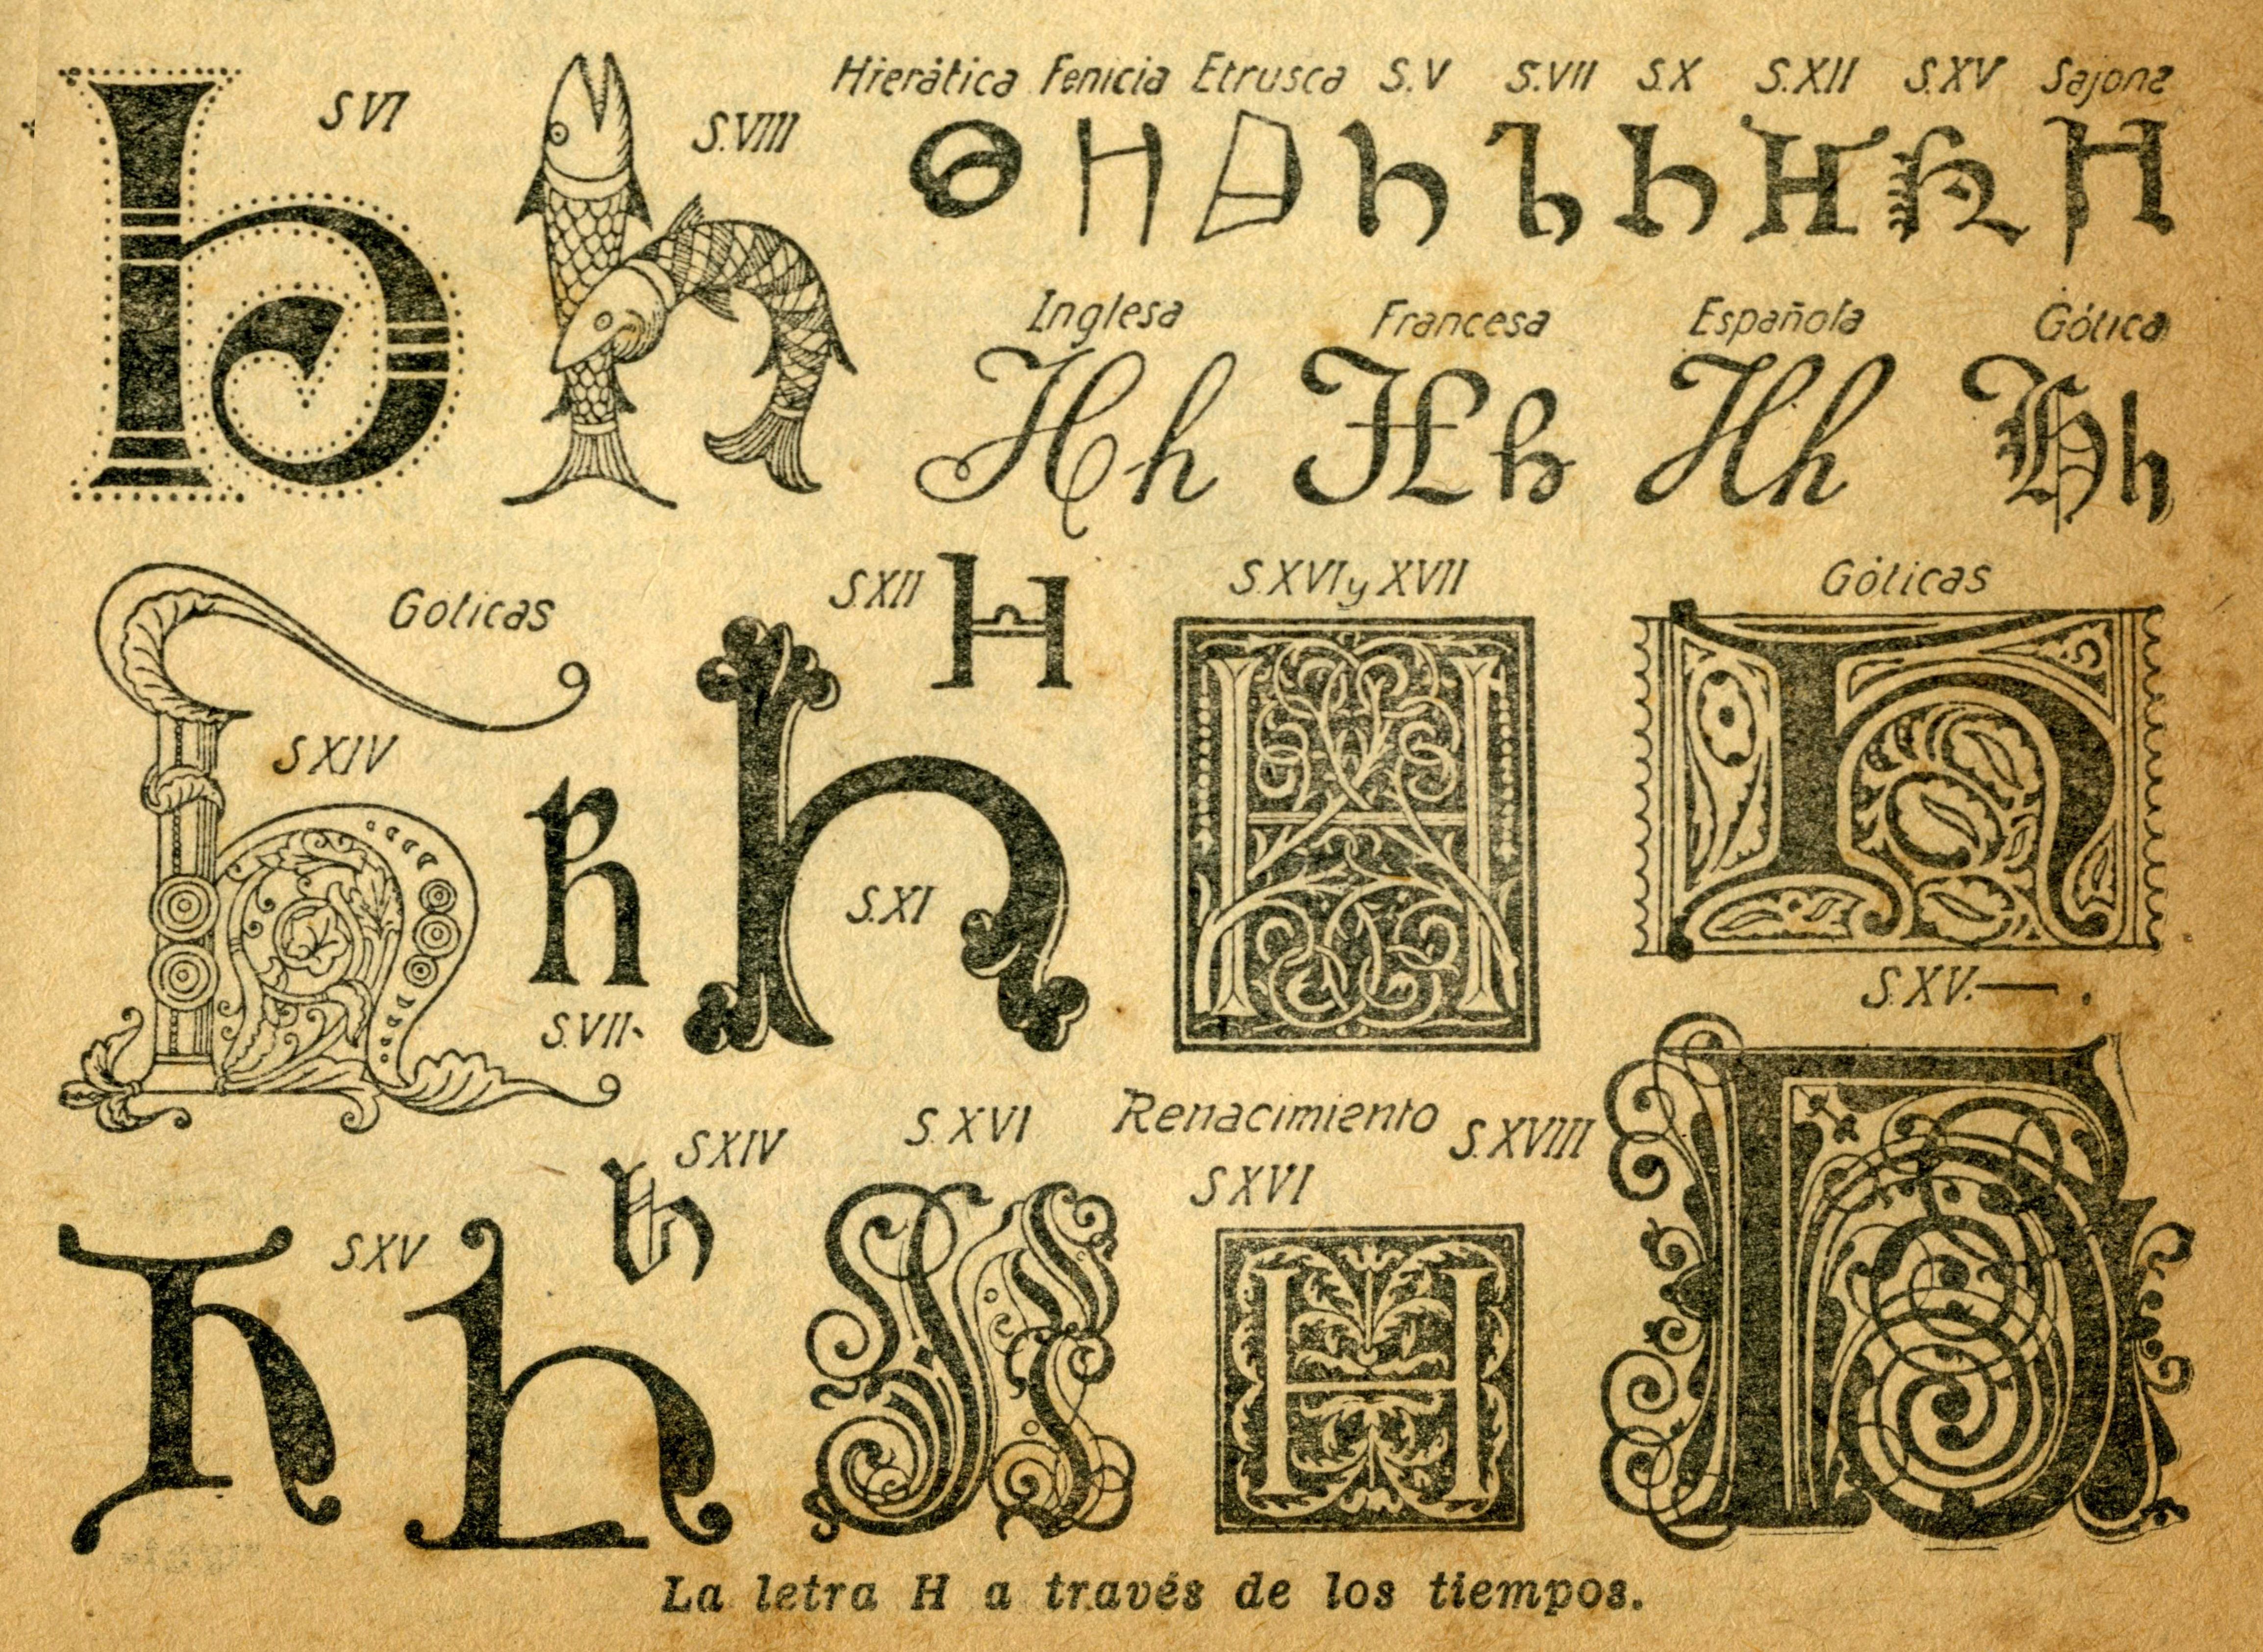 S.VI
S.VIII
Hierática Fenicia Etrusca S.V S.VII S.X S.XII S.XV Sajona
h h
H h h h H h H
Inglesa Francesa Española Gótica
Hh Hh Hh Hh
Goticas S.XII H S.XVI y XVII Góticas
S.XIV
h h h H h
S.XI
S.VII
S.XV.—.
S.XIV S.XVI Renacimiento S.XVIII
S.XVI
S.XV
h h h H H h
La letra H a través de los tiempos.